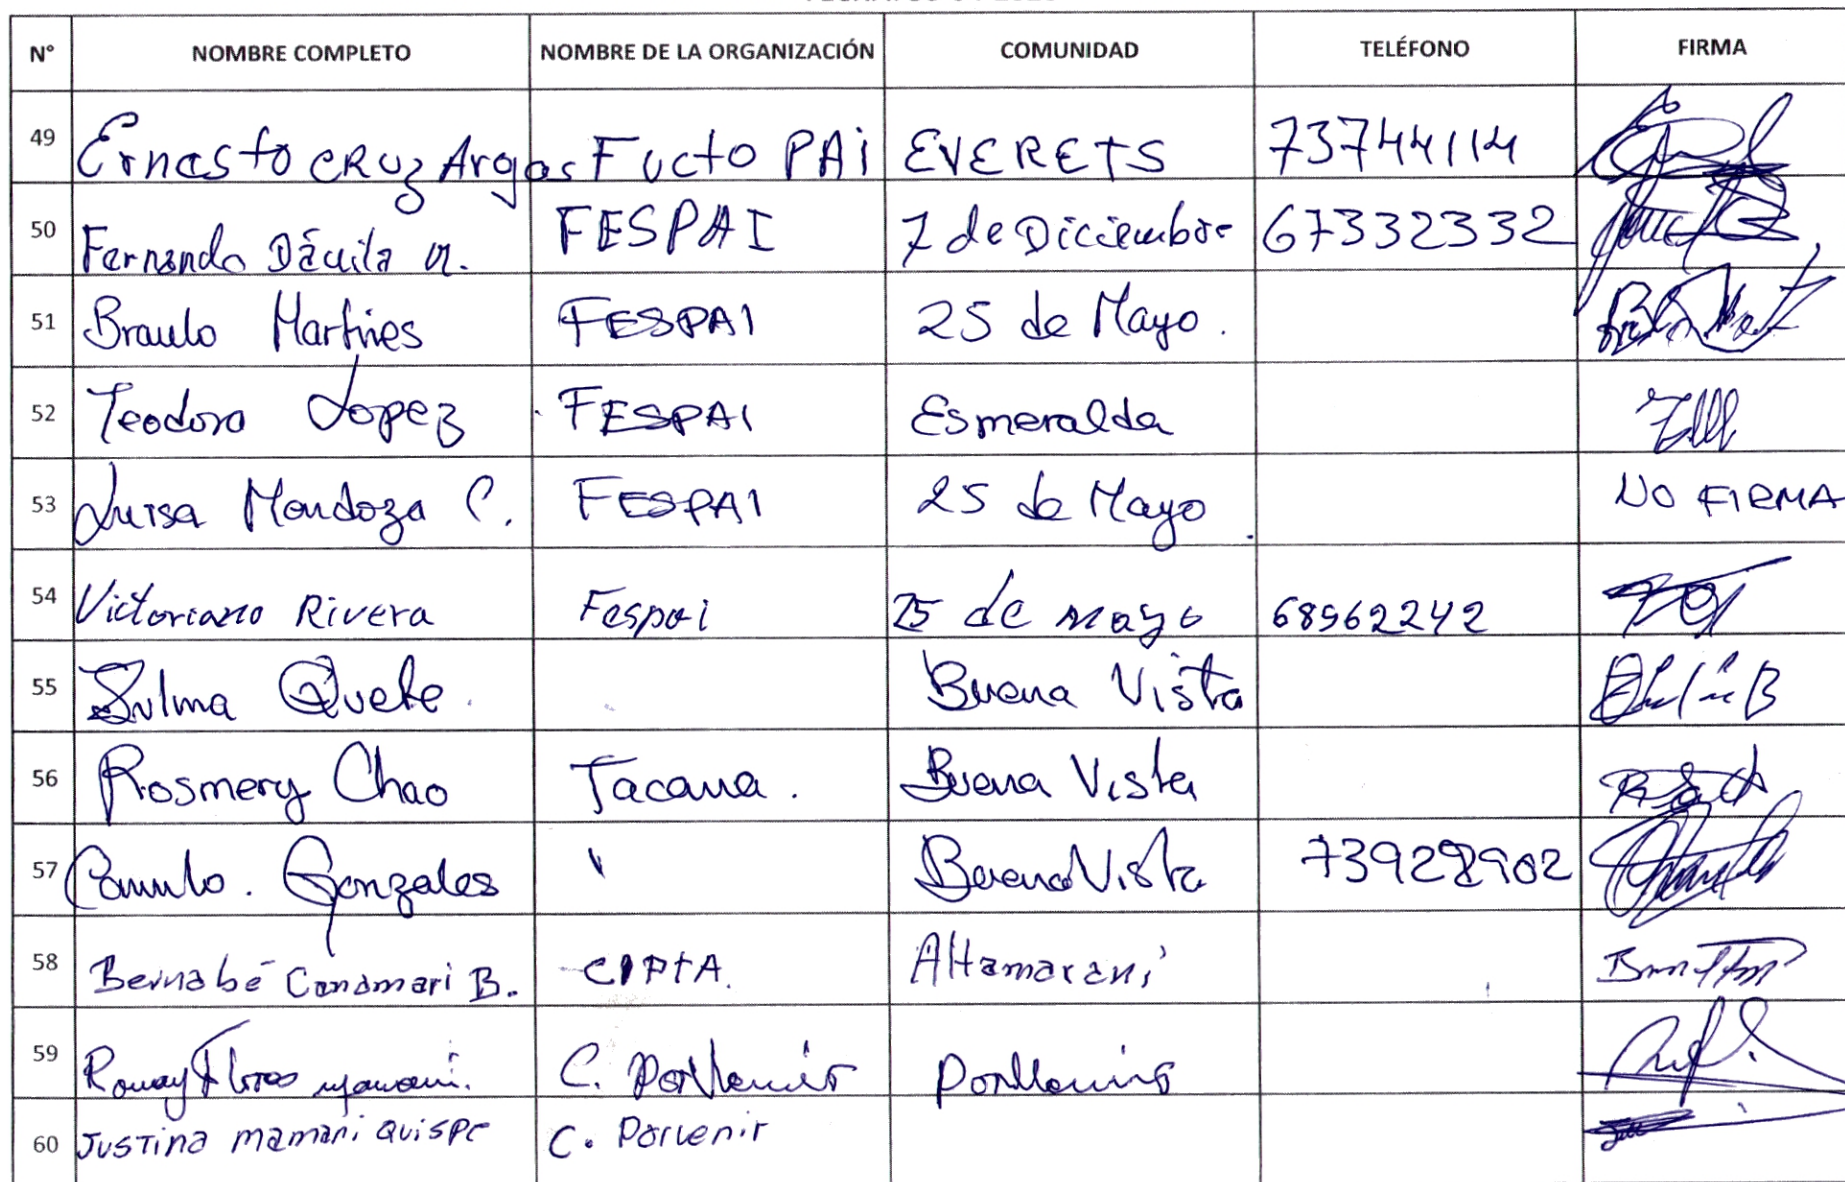 N° NOMBRE COMPLETO NOMBRE DE LA ORGANIZACIÓN COMUNIDAD TELÉFONO FIRMA
49 Ernesto CRUZ Argos Fucto PAi EVERETS 73744114
50 Fernando Dávila M. FESPAI 7 de Diciembre 67332332
51 Braulo Martines FESPAI 25 de Mayo.
52 Teodoro Lopez FESPAI Esmeralda
53 Luisa Mendoza C. FESPAI 25 de Mayo NO FIRMA
54 Victoriano Rivera Fespai 25 de mayo 68962242
55 Zulma Quete. Buena Vista
56 Rosmery Chao Tacana. Buena Vista
57 Camilo. Gonzales Buena Vista 73928902
58 Bernabé Canamari B. CIPTA. Altamarani
59 Flores C. Porvenir Porvenir
60 Justina mamani Quispe C. Porvenir